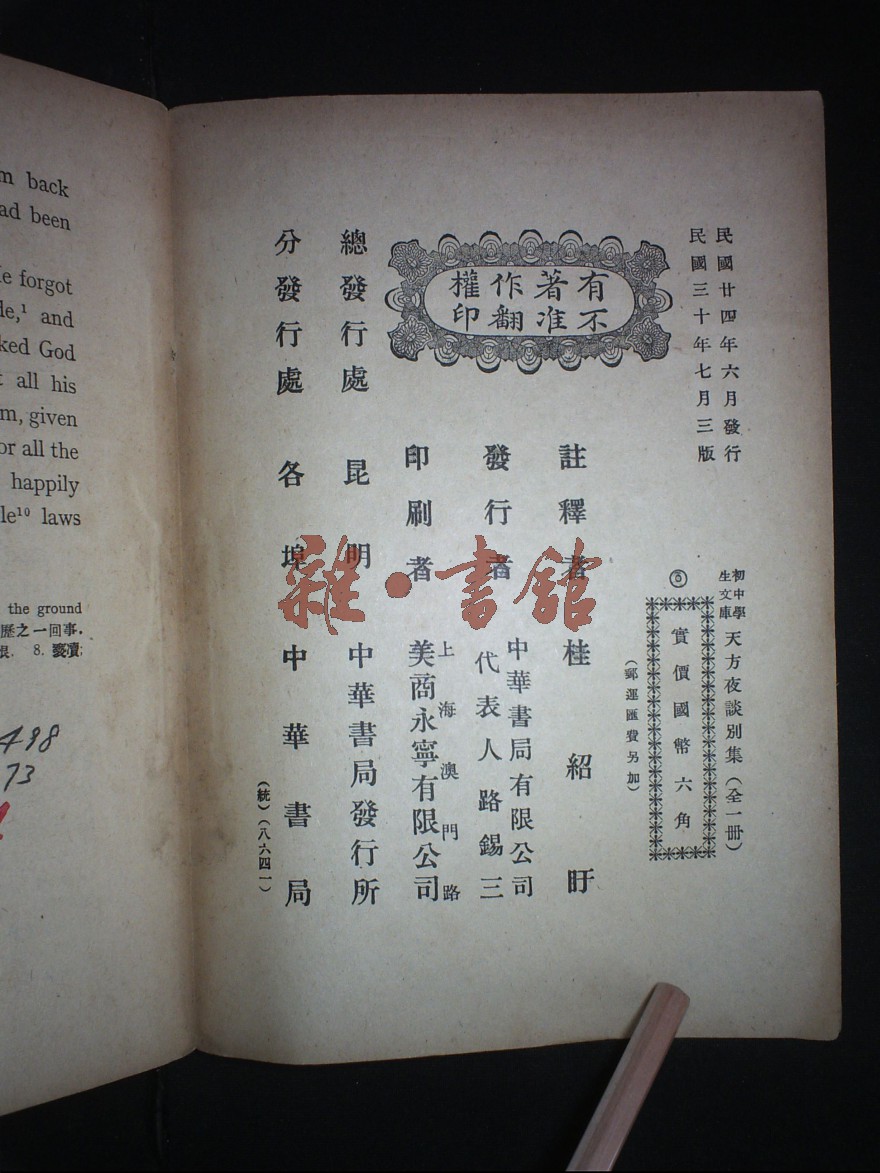 m back
ad been
e forgot
de,¹ and
ked God
t all his
m, given
or all the
happily
le¹⁰ laws
the ground
歷之一回事.
8. 褻瀆;
498
73
民國廿四年六月發行
民國三十年七月三版
初中學生文庫
天方夜談別集（全一冊）
實價國幣六角
（郵運匯費另加）
有著作權
不准翻印
註釋者 桂紹盱
發行者 中華書局有限公司
代表人 路錫三
印刷者 上海澳門路
美商永寧有限公司
總發行處 昆明 中華書局發行所
分發行處 各埠 中華書局
（統）（八六四一）
雜·書館